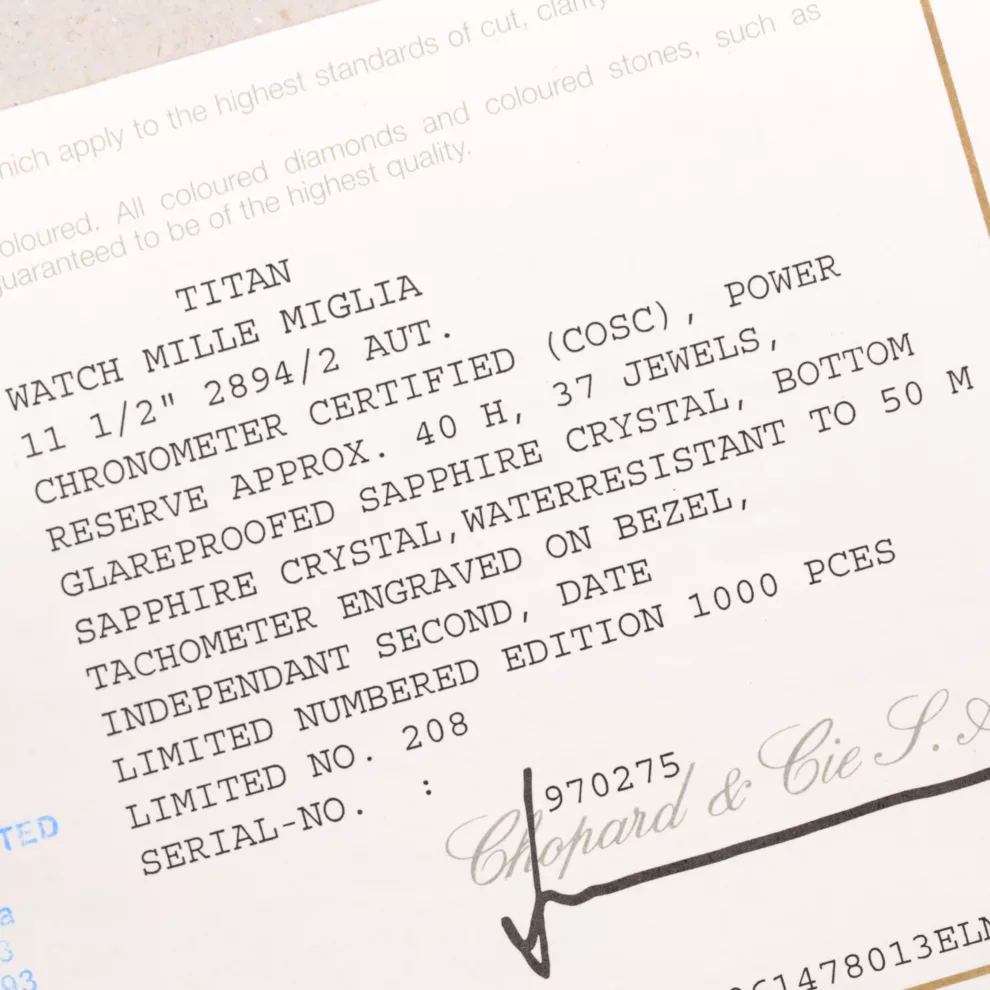 which apply to the highest standards of cut, clarity
coloured. All coloured diamonds and coloured stones, such as
guaranteed to be of the highest quality.
TITAN
WATCH MILLE MIGLIA
11 1/2" 2894/2 AUT.
CHRONOMETER CERTIFIED (COSC), POWER
RESERVE APPROX. 40 H, 37 JEWELS,
GLAREPROOFED SAPPHIRE CRYSTAL, BOTTOM
SAPPHIRE CRYSTAL,WATERRESISTANT TO 50 M
TACHOMETER ENGRAVED ON BEZEL,
INDEPENDANT SECOND, DATE
LIMITED NUMBERED EDITION 1000 PCES
LIMITED NO. 208
SERIAL-NO. : 970275
Chopard & Cie S.A
TED
a
3
93
61478013ELN